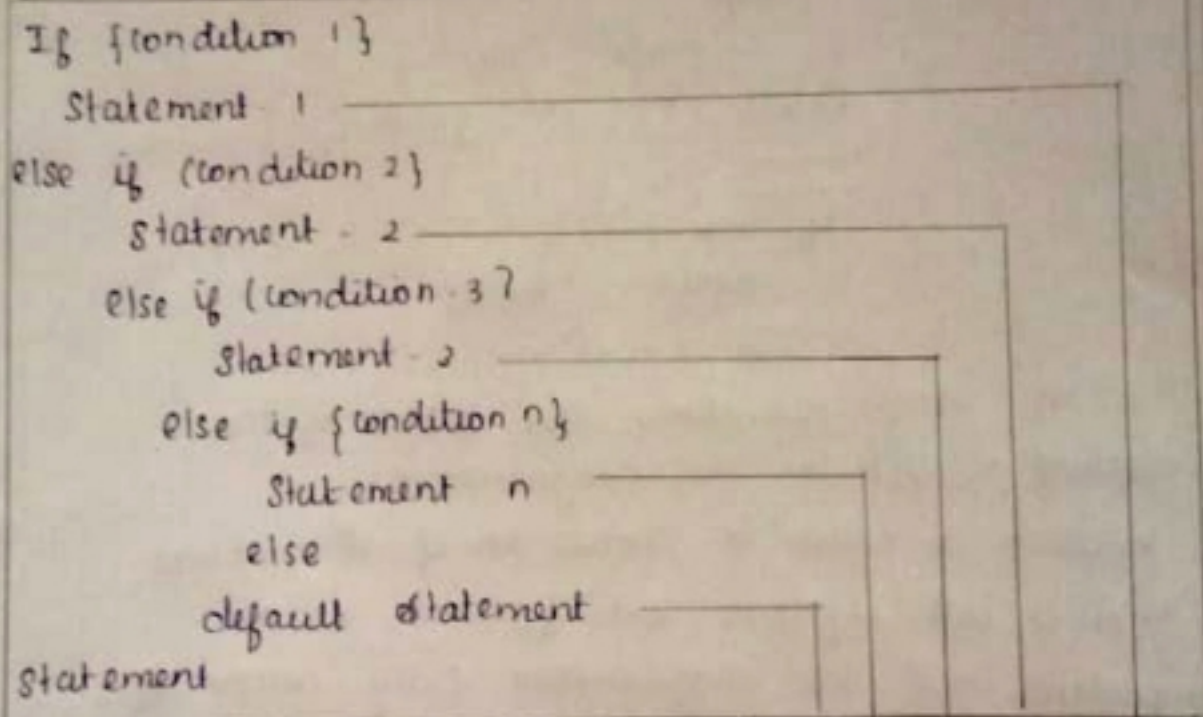 If {condition 1}
Statement - 1
else if (condition 2}
Statement - 2
else if (condition - 3}
Statement - 3
else if {condition n}
Statement n
else
default statement
Statement